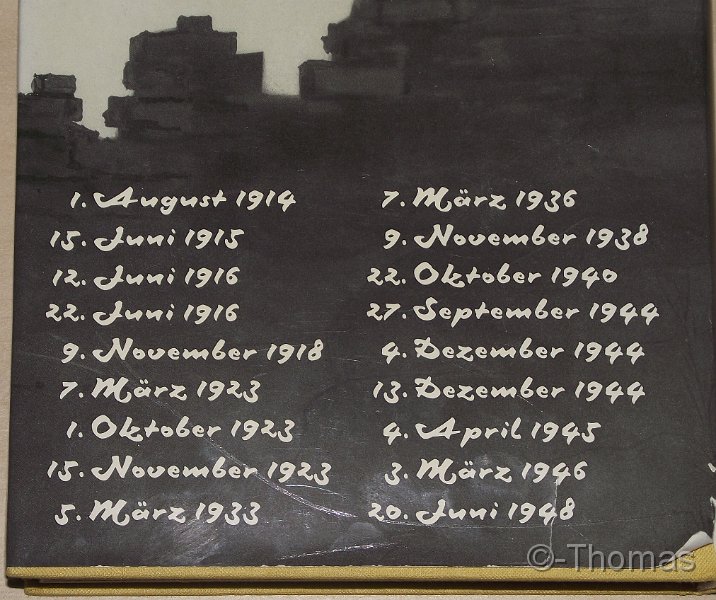 1. August 1914
15. Juni 1915
12. Juni 1916
22. Juni 1916
9. November 1918
7. März 1923
1. Oktober 1923
15. November 1923
5. März 1933
7. März 1936
9. November 1938
22. Oktober 1940
27. September 1944
4. Dezember 1944
13. Dezember 1944
4. April 1945
3. März 1946
20. Juni 1948
©-Thomas